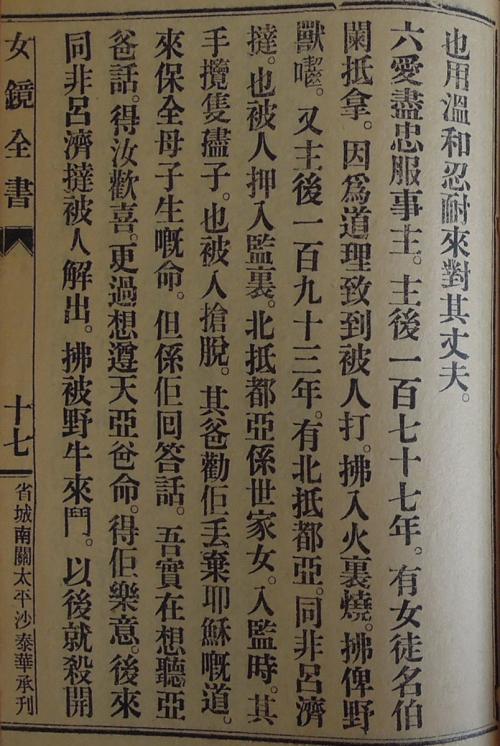 也用溫和忍耐來對其丈夫。
六愛盡忠服事主。主後一百七十七年。有女徒名伯
闌抵拿。因爲道理致到被人打。拂入火裏燒。拂俾野
獸囓。又主後一百九十三年。有北抵都亞。同非呂濟
撻。也被人押入監裏。北抵都亞係世家女。入監時。其
手攬隻孻子。也被人搶脫。其爸勸佢丟棄耶穌嘅道。
來保全母子生嘅命。但係佢回答話。吾實在想聽亞
爸話。得汝歡喜。更過想遵天亞爸命。得佢樂意。後來
同非呂濟撻被人解出。拂被野牛來鬥。以後就殺開
女鏡全書
十七
省城南關太平沙泰華承刊